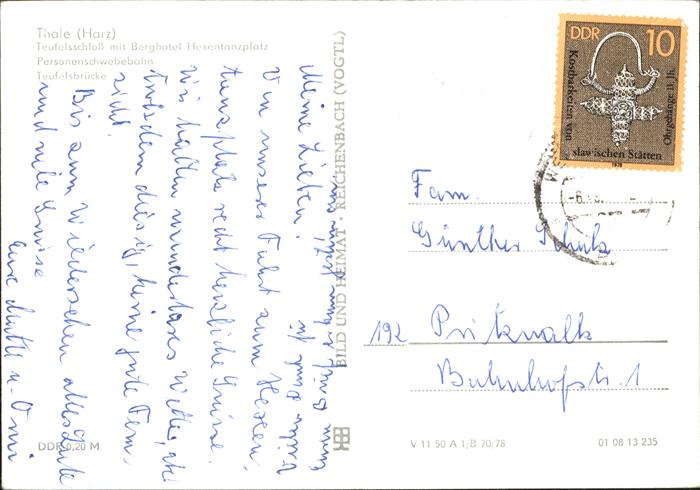 Thale (Harz)
Teufelsschloß mit Berghotel Hexentanzplatz
Personenschwebebahn
Teufelsbrücke
Meine Lieben!
Von unserer Fahrt zum Hexen-
tanzplatz recht herzliche Grüsse.
Wir hatten wunderbares Wetter,
trotzdem diesig, keine gute Fern-
sicht.
Bis zum Wiedersehen alles Gute
und viele Grüsse
Eure Mutti u. Omi
DDR 0,20 M
BILD UND HEIMAT · REICHENBACH (VOGTL)
DDR 10
Kostbarkeiten von
slawischen Stätten
Ohrgehänge 11. Jh.
1978
Fam.
Günther Schulz
192 Pritzwalk
Bahnhofstr. 1
V 11 50 A 1/B 70/78
01 08 13 235